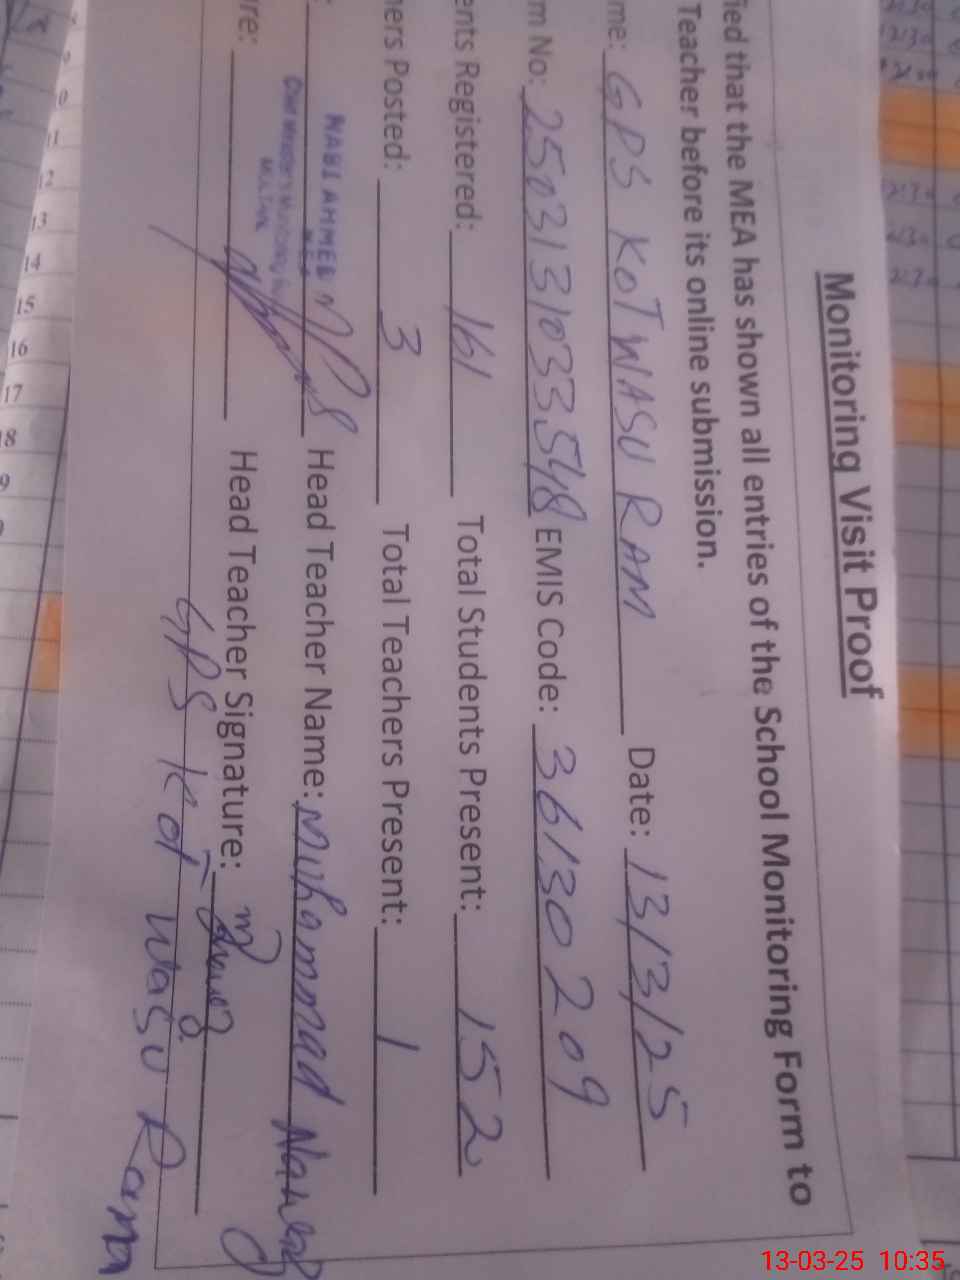 Monitoring Visit Proof
ied that the MEA has shown all entries of the School Monitoring Form to
Teacher before its online submission.
me: GPS KOT WASU RAM Date: 13/3/25
m No: 2503131033548 EMIS Code: 36130209
ents Registered: 161 Total Students Present: 152
ners Posted: 3 Total Teachers Present: 1
NABI AHMED Head Teacher Name: Muhammad Nawaz
MULTAN
re: Head Teacher Signature:
GPS Kot Wasu Ram
0
11
12
13
14
15
16
17
18
9
13-03-25 10:35